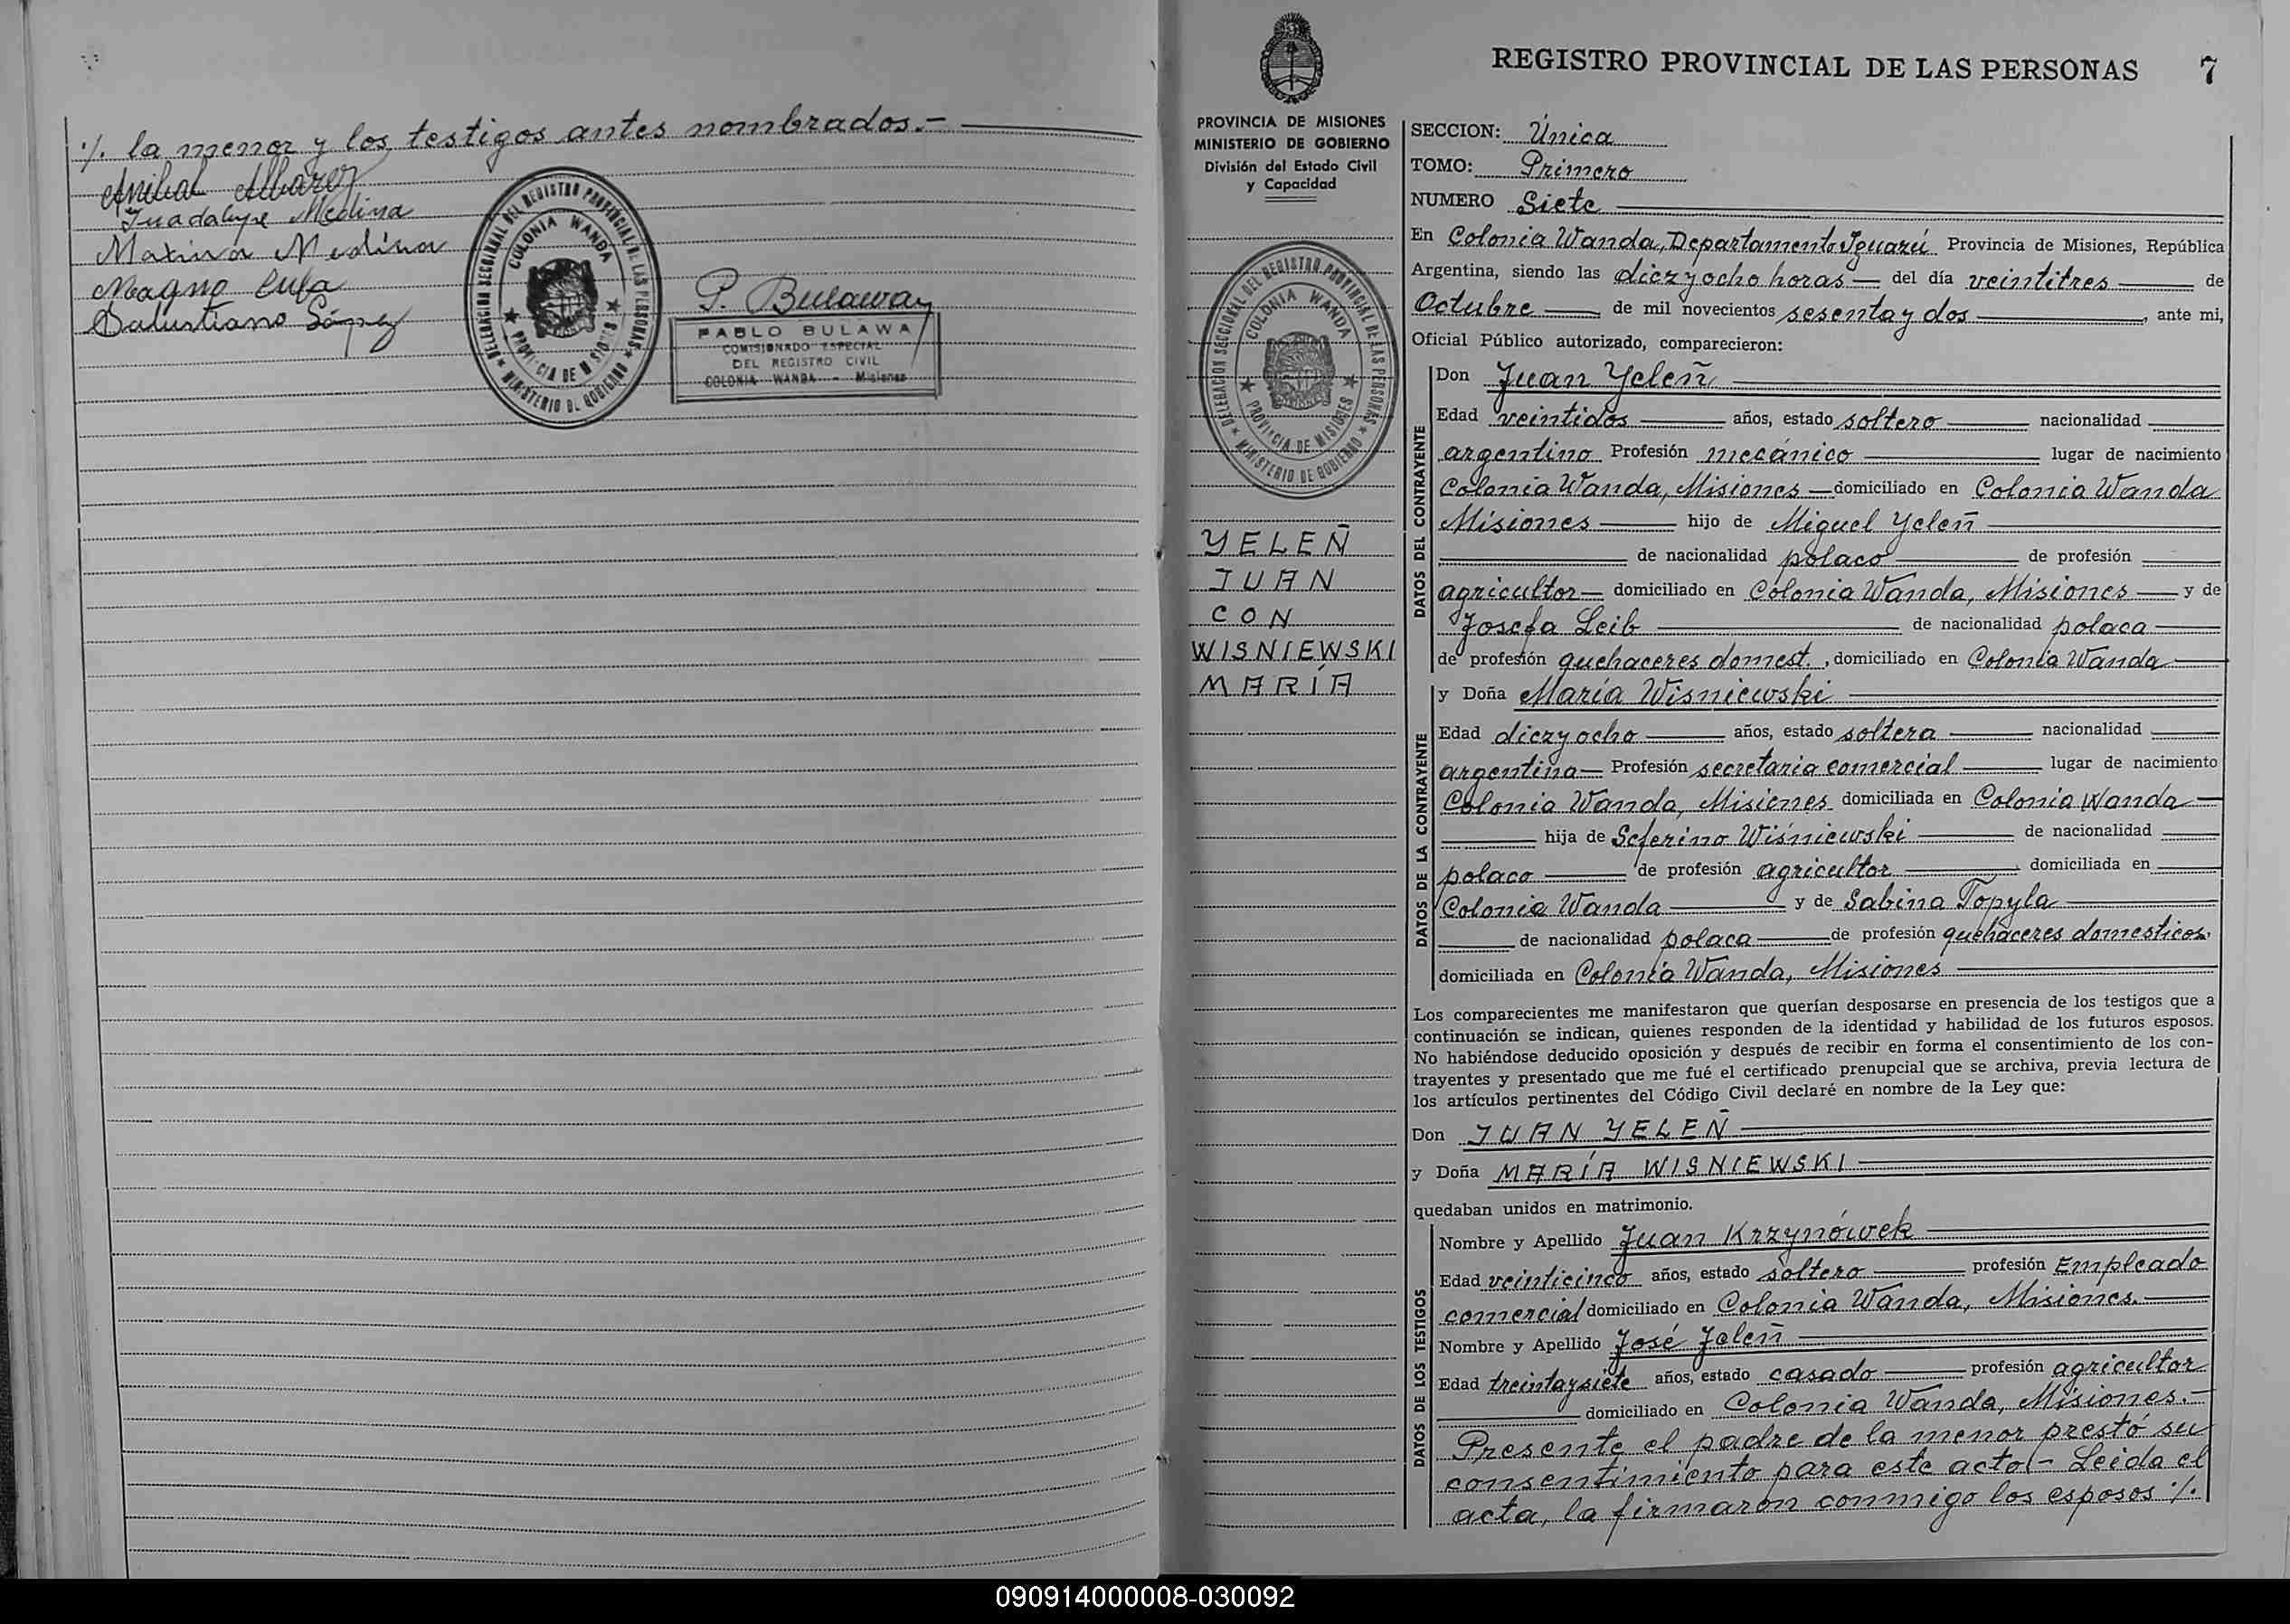 ·/. la menor y los testigos antes nombrados.-
Anibal Albarez
Guadalupe Medina
Matina Medina
Magno
Salustiano López
DELEGACION SECCIONAL DEL REGISTRO PROVINCIAL DE LAS PERSONAS
COLONIA WANDA
PROVINCIA DE MISIONES
MINISTERIO DE GOBIERNO
P. Bulaway
PABLO BULAWA
COMISIONADO ESPECIAL
DEL REGISTRO CIVIL
COLONIA WANDA - Misiones
REGISTRO PROVINCIAL DE LAS PERSONAS 7
PROVINCIA DE MISIONES
MINISTERIO DE GOBIERNO
División del Estado Civil
y Capacidad
DELEGACION SECCIONAL DEL REGISTRO PROVINCIAL DE LAS PERSONAS
COLONIA WANDA
PROVINCIA DE MISIONES
MINISTERIO DE GOBIERNO
YELEÑ
JUAN
CON
WISNIEWSKI
MARÍA
SECCION: Única
TOMO: Primero
NUMERO Siete
En Colonia Wanda, Departamento Iguazú Provincia de Misiones, República
Argentina, siendo las diez y ocho horas — del día veintitres — de
Octubre — de mil novecientos sesenta y dos —, ante mi,
Oficial Público autorizado, comparecieron:
DATOS DEL CONTRAYENTE
Don Juan Yeleñ
Edad veintidos — años, estado soltero — nacionalidad
argentino Profesión mecánico — lugar de nacimiento
Colonia Wanda, Misiones — domiciliado en Colonia Wanda
Misiones — hijo de Miguel Yeleñ
de nacionalidad polaco — de profesión
agricultor — domiciliado en Colonia Wanda, Misiones — y de
Josefa Leib — de nacionalidad polaca —
de profesión quehaceres domest. , domiciliado en Colonia Wanda —
DATOS DE LA CONTRAYENTE
y Doña María Wisniewski
Edad diez y ocho — años, estado soltera — nacionalidad
argentina — Profesión secretaria comercial — lugar de nacimiento
Colonia Wanda, Misiones domiciliada en Colonia Wanda —
hija de Seferino Wiśniewski — de nacionalidad
polaco — de profesión agricultor — domiciliada en
Colonia Wanda — y de Sabina Topyla —
de nacionalidad polaca — de profesión quehaceres domesticos,
domiciliada en Colonia Wanda, Misiones —
Los comparecientes me manifestaron que querían desposarse en presencia de los testigos que a
continuación se indican, quienes responden de la identidad y habilidad de los futuros esposos.
No habiéndose deducido oposición y después de recibir en forma el consentimiento de los con-
trayentes y presentado que me fué el certificado prenupcial que se archiva, previa lectura de
los artículos pertinentes del Código Civil declaré en nombre de la Ley que:
Don JUAN YELEÑ
y Doña MARÍA WISNIEWSKI
quedaban unidos en matrimonio.
DATOS DE LOS TESTIGOS
Nombre y Apellido Juan Krzynówek
Edad veinticinco años, estado soltero — profesión Empleado
comercial domiciliado en Colonia Wanda, Misiones. —
Nombre y Apellido José Jeleñ
Edad treinta y siete años, estado casado — profesión agricultor
domiciliado en Colonia Wanda, Misiones.-
Presente el padre de la menor prestó su
consentimiento para este acto.- Leida el
acta, la firmaron conmigo los esposos ·/.
090914000008-030092